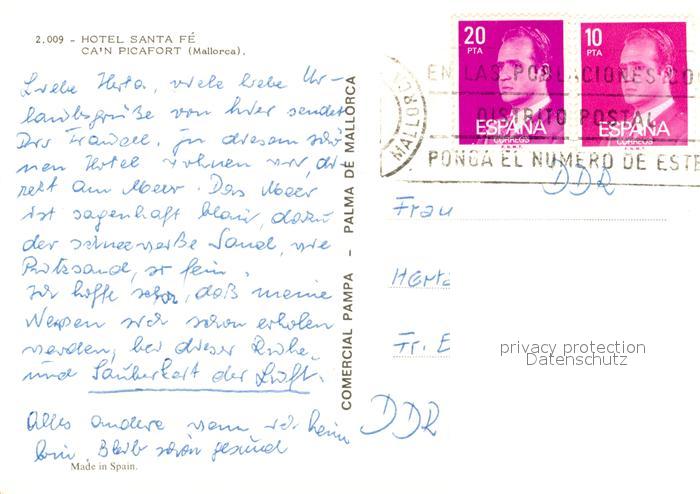 2.009 - HOTEL SANTA FÉ
CA'N PICAFORT (Mallorca).
Liebe Herta, viele liebe Ur-
laubsgrüße von hier sendet
Dir Traudel. In diesem schö-
nen Hotel wohnen wir, di-
rekt am Meer. Das Meer
ist sagenhaft blau, dazu
der schneeweiße Sand, wie
Putzsand, so fein.
Ich hoffe sehr, daß meine
Nerven sich schon erholen
werden, bei dieser Ruhe
und Sauberkeit der Luft.
Alles andere wenn ich heim
bin. Bleib schön gesund
Made in Spain.
COMERCIAL PAMPA - PALMA DE MALLORCA
20
PTA
ESPAÑA
CORREOS
10
PTA
ESPAÑA
CORREOS
MALLORCA
EN LAS POBLACIONES CO
DISTRITO POSTAL
PONGA EL NUMERO DE ESTE
DDR
Frau
Herta
Fr. E
DDR
privacy protection
Datenschutz